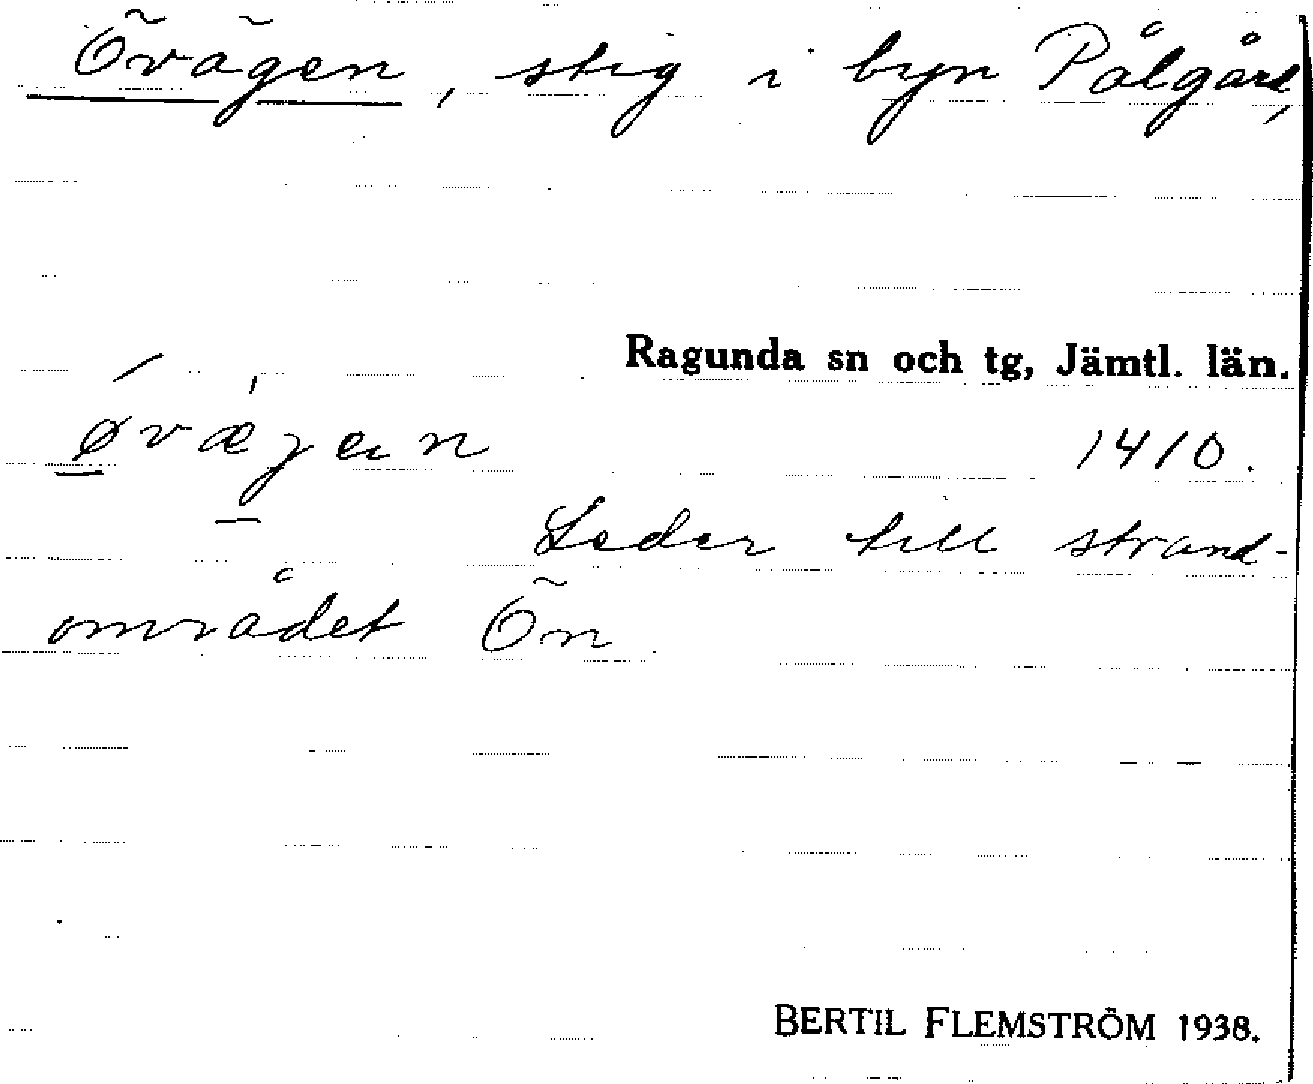 Övägen, stig i byn Pålgård,
Ragunda sn och tg, Jämtl. län.
øvæjen 1410.
Leder till strand-
området Ön.
BERTIL FLEMSTRÖM 1938.